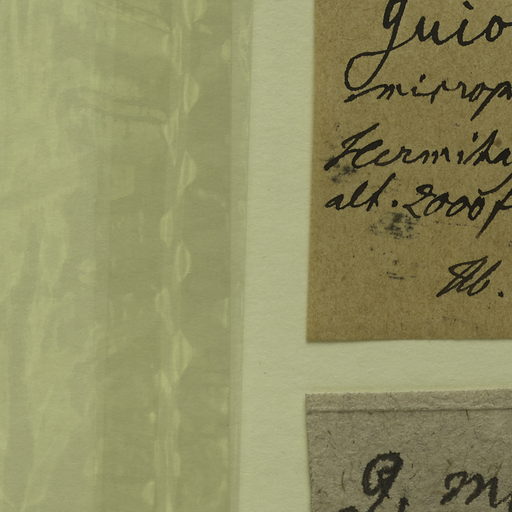 Guio
microp
Hermita
alt. 2000 f
Hb.
G. m